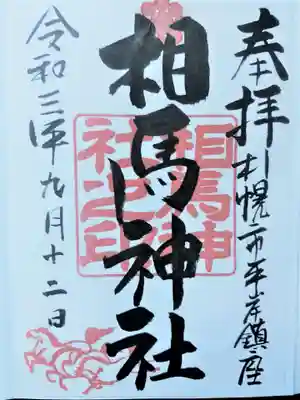 奉拝
札幌市平岸鎮座
相馬神社
相馬神
社之印
令和三年九月十二日